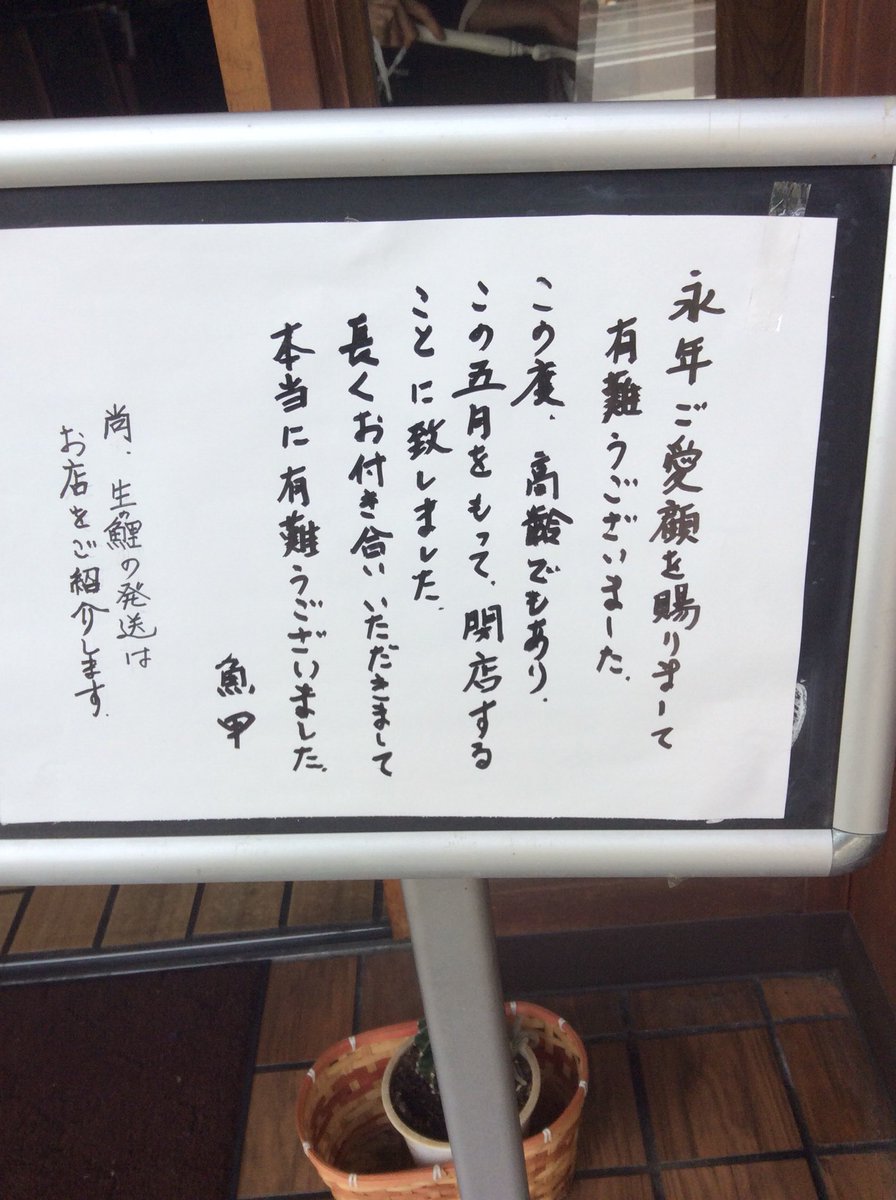 永年ご愛顧を賜りまして
有難うございました.
この度、高齢でもあり、
この五月をもって、閉店する
ことに致しました.
長くお付き合いいただきまして
本当に有難うございました.
魚甲
尚、生鯉の発送は
お店をご紹介します.